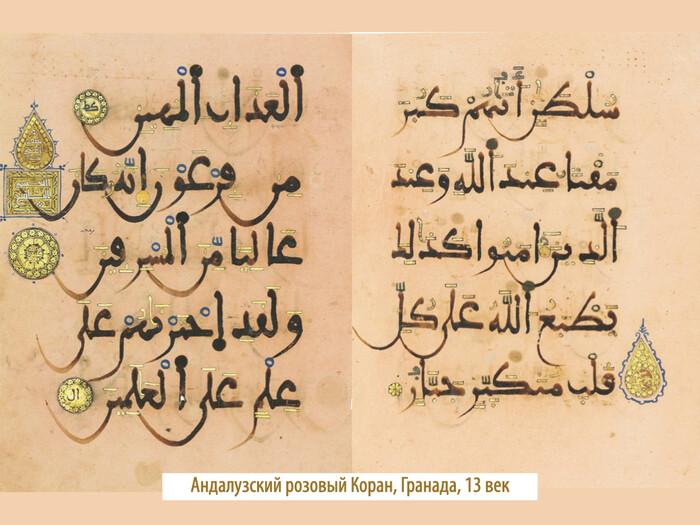 سلطن أتيهم كبر
مقتا عند الله وعند
الذين امنوا كذلك
يطبع الله على كل
قلب متكبر جبار
العذاب المهين
من فرعون إنه كان
عاليا من المسرفين
ولقد اخترنهم على
علم على العلمين
Андалузский розовый Коран, Гранада, 13 век